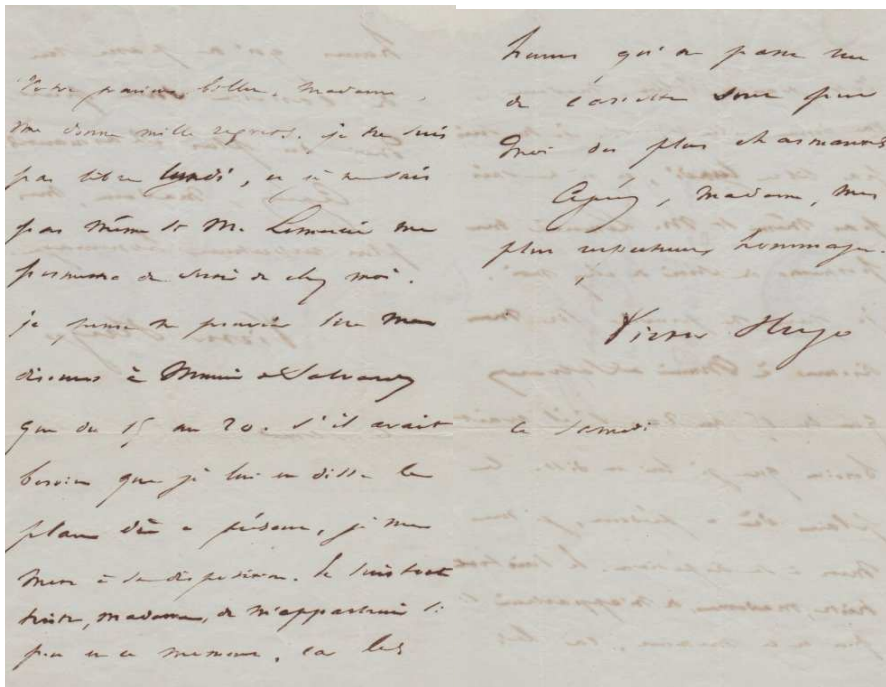 Votre gracieux billet, Madame,
me donne mille regrets. je ne suis
pas libre lundi, et je ne sais
pas même si M. Lemercier me
permettra de sortir de chez moi.
je pense ne pouvoir lire mon
discours à Monsieur de Salvandy
que du 15 au 20. S'il avait
besoin que je lui en disse le
plan dès à présent, je me
mets à sa disposition. Je suis tout
triste, madame, de m'appartenir si
peu en ce moment, car les
heures qu'on passe
de causerie sont pour
moi des plus charmantes
Agréez, Madame, mes
plus respectueux hommages.
Victor Hugo
ce samedi